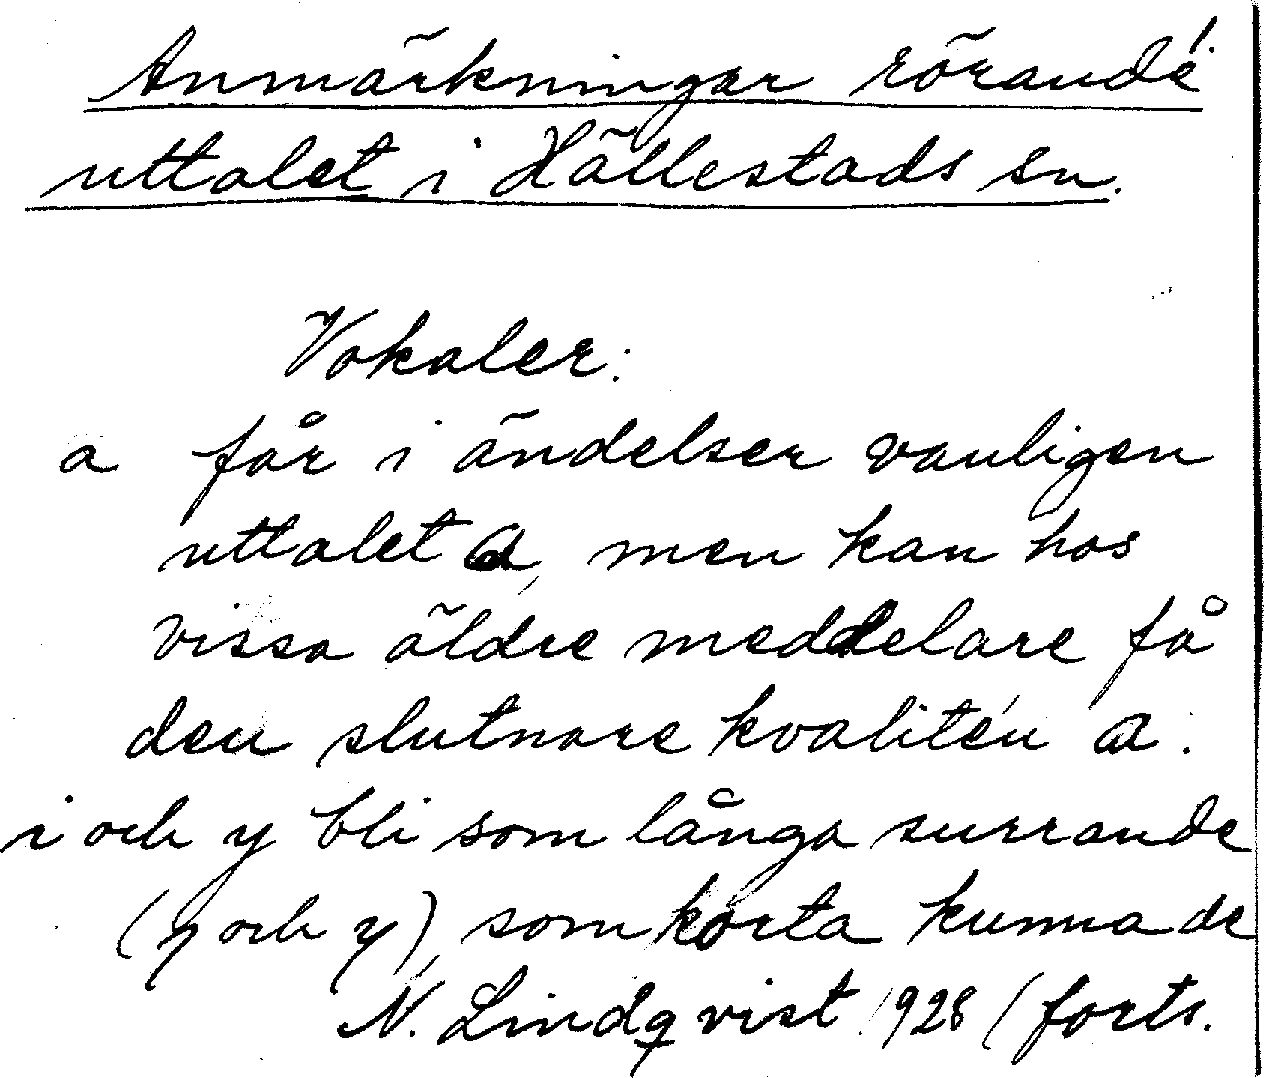 1.
Anmärkningar rörande
uttalet i Hällestads sn.
Vokaler:
a får i ändelser vanligen
uttalet a, men kan hos
vissa äldre meddelare få
den slutnare kvalitén a.
i och y bli som långa surrande
(ɿ och y), som korta kunna de
N. Lindqvist 1928 (forts.